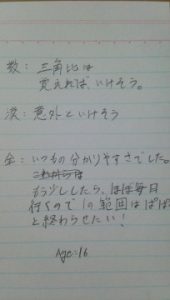 数: 三角比は
覚えれば、いけそう。
漢: 意外といけそう
金: いつもの分かりやすさでした。
もう少ししたら、ほぼ毎日
行くので1の範囲はぱぱ
と終わらせたい!
Age:16